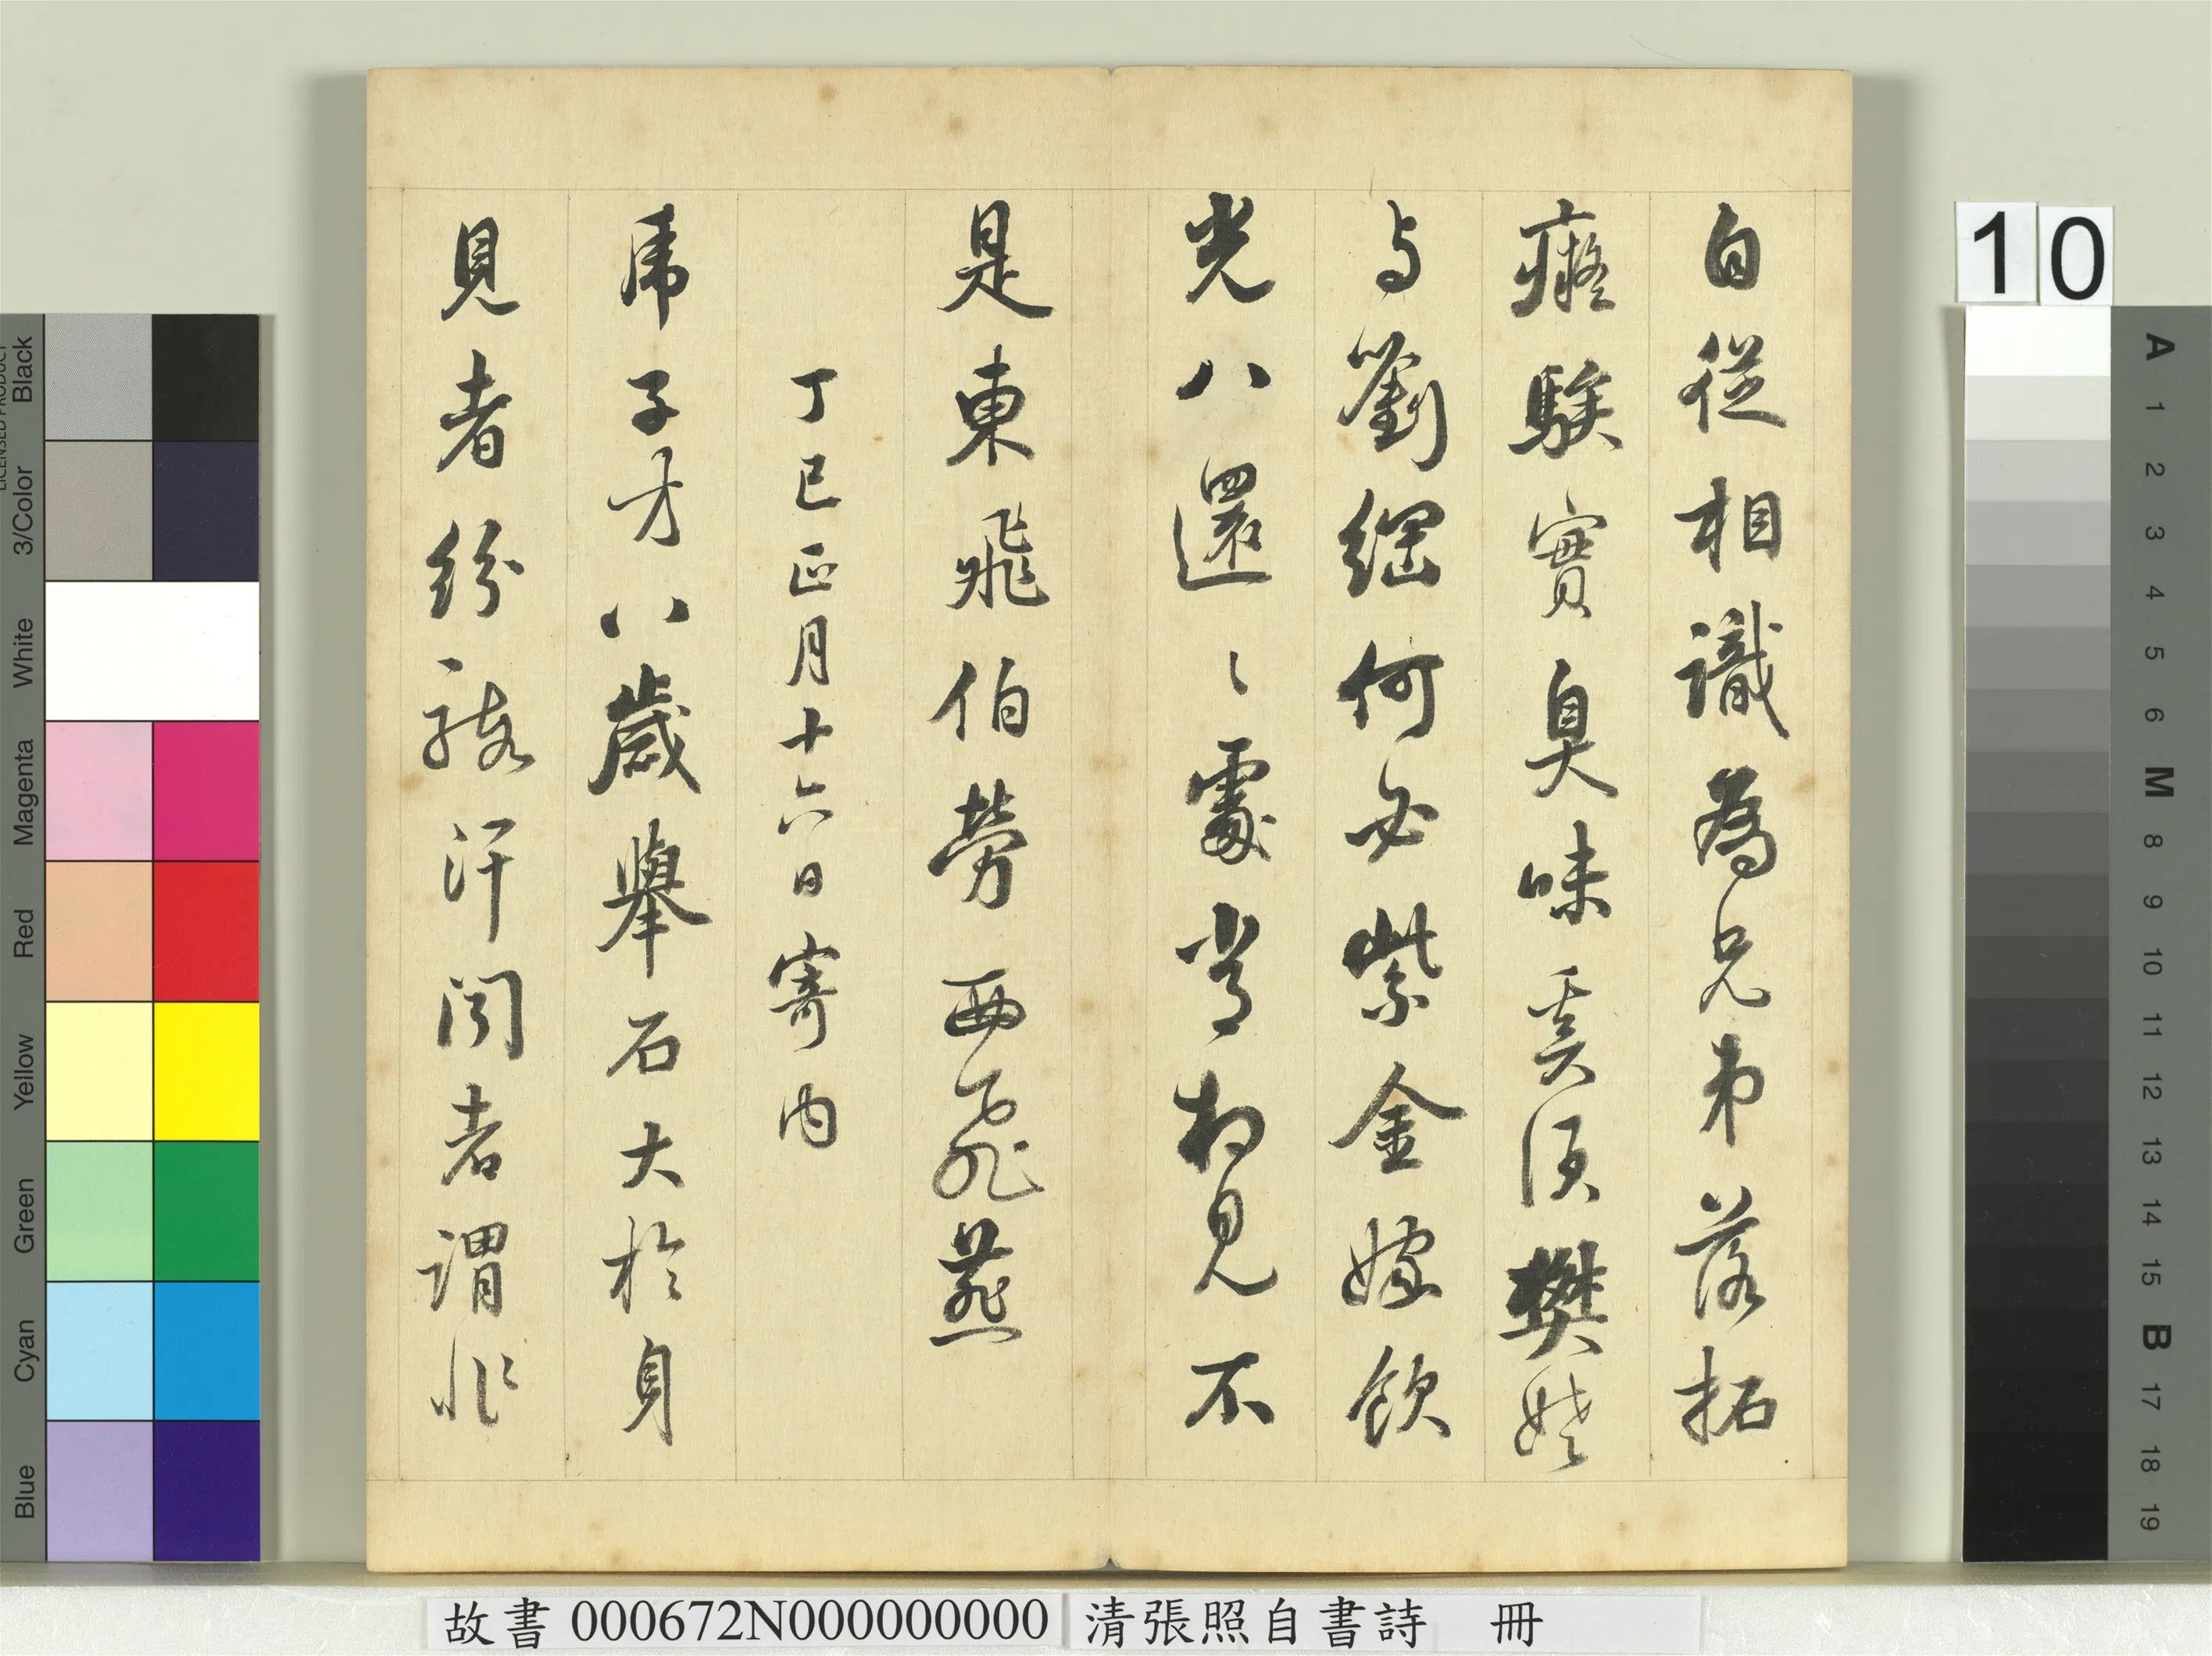 自從相識為兄弟落拓
癡騃實臭味奚須樊姥
与劉綱何必紫金嫁飲
光八還〻處常相見不
是東飛伯勞西飛燕
丁巳正月十六日寄內
乕子才八歲舉石大於身
見者紛駭汗聞者謂非
10
故書 000672N000000000 清張照自書詩 冊
Black
3/Color
White
Magenta
Red
Yellow
Green
Cyan
Blue
A 1 2 3 4 5 6 M 8 9 10 11 12 13 14 15 B 17 18 19